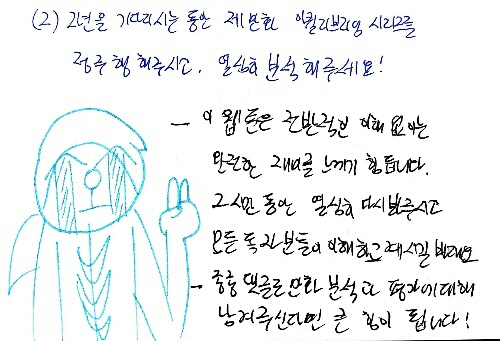 (2) 2년을 기다리시는 동안 제 만화 이퀄리브리엄 시리즈를
정주행 해주시고, 열심히 분석해주세요!
- 이 웹툰은 전반적인 이해 없이는
완전한 재미를 느끼기 힘듭니다.
그 시간 동안 열심히 다시 봐주시고
모든 독자분들이 이해하고 계시길 바래요
- 종종 댓글로 만화 분석과 평가에 대해
남겨주신다면 큰 힘이 됩니다!